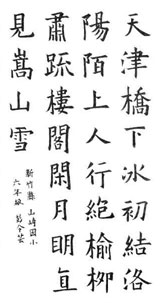 天津橋下冰初結洛
陽陌上人行絕榆柳
肅踈樓閣閑月明直
見嵩山雪
新竹縣 山崎國小
六年級